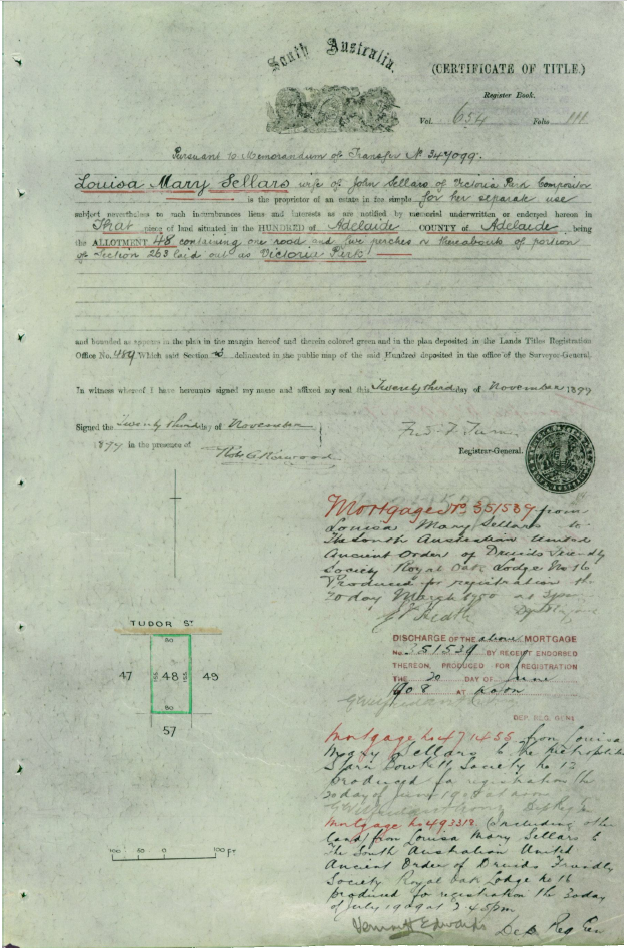 South Australia.
(CERTIFICATE OF TITLE.)
Register Book.
Vol. 654 Folio 111
Pursuant to Memorandum of Transfer No 347099.
Louisa Mary Sellars wife of John Sellars of Victoria Park Compositor
is the proprietor of an estate in fee simple for her separate use
subject nevertheless to such incumbrances liens and interests as are notified by memorial underwritten or endorsed hereon in
That piece of land situated in the HUNDRED of Adelaide COUNTY of Adelaide being
the ALLOTMENT 48 containing one rood and five perches or thereabouts of portion
of Section 263 laid out as Victoria Park
and bounded as appears in the plan in the margin hereof and therein colored green and in the plan deposited in the Lands Titles Registration
Office No. 484 Which said Section is delineated in the public map of the said Hundred deposited in the office of the Surveyor-General.
In witness whereof I have hereunto signed my name and affixed my seal this Twenty third day of November 1899
Signed the Twenty third day of November
1899 in the presence of
Registrar-General.
Mortgage No 351539 from
Louisa Mary Sellars to
The South Australian United
Ancient Order of Druids Friendly
Society Royal Oak Lodge No 16
Produced for registration the
20 day March 1900 at 3pm
DISCHARGE OF THE above MORTGAGE
No. 351539 BY RECEIPT ENDORSED
THEREON, PRODUCED FOR REGISTRATION
THE 20 DAY OF June
1908 AT noon
DEP. REG. GENL
Mortgage No 471455 from Louisa
Mary Sellars to the Metropolitan
Starr Bowkett Society No 13
produced for registration the
20 day of June 1908 at noon
Mortgage No 493318 (including other
land) from Louisa Mary Sellars to
The South Australian United
Ancient Order of Druids Friendly
Society Royal Oak Lodge No 16
produced for registration the 30 day
of July 1909 at 2.45pm
Edwards Dep Reg Gen
TUDOR ST
80
47 155 48 155 49
80
57
100 50 0 100 FT